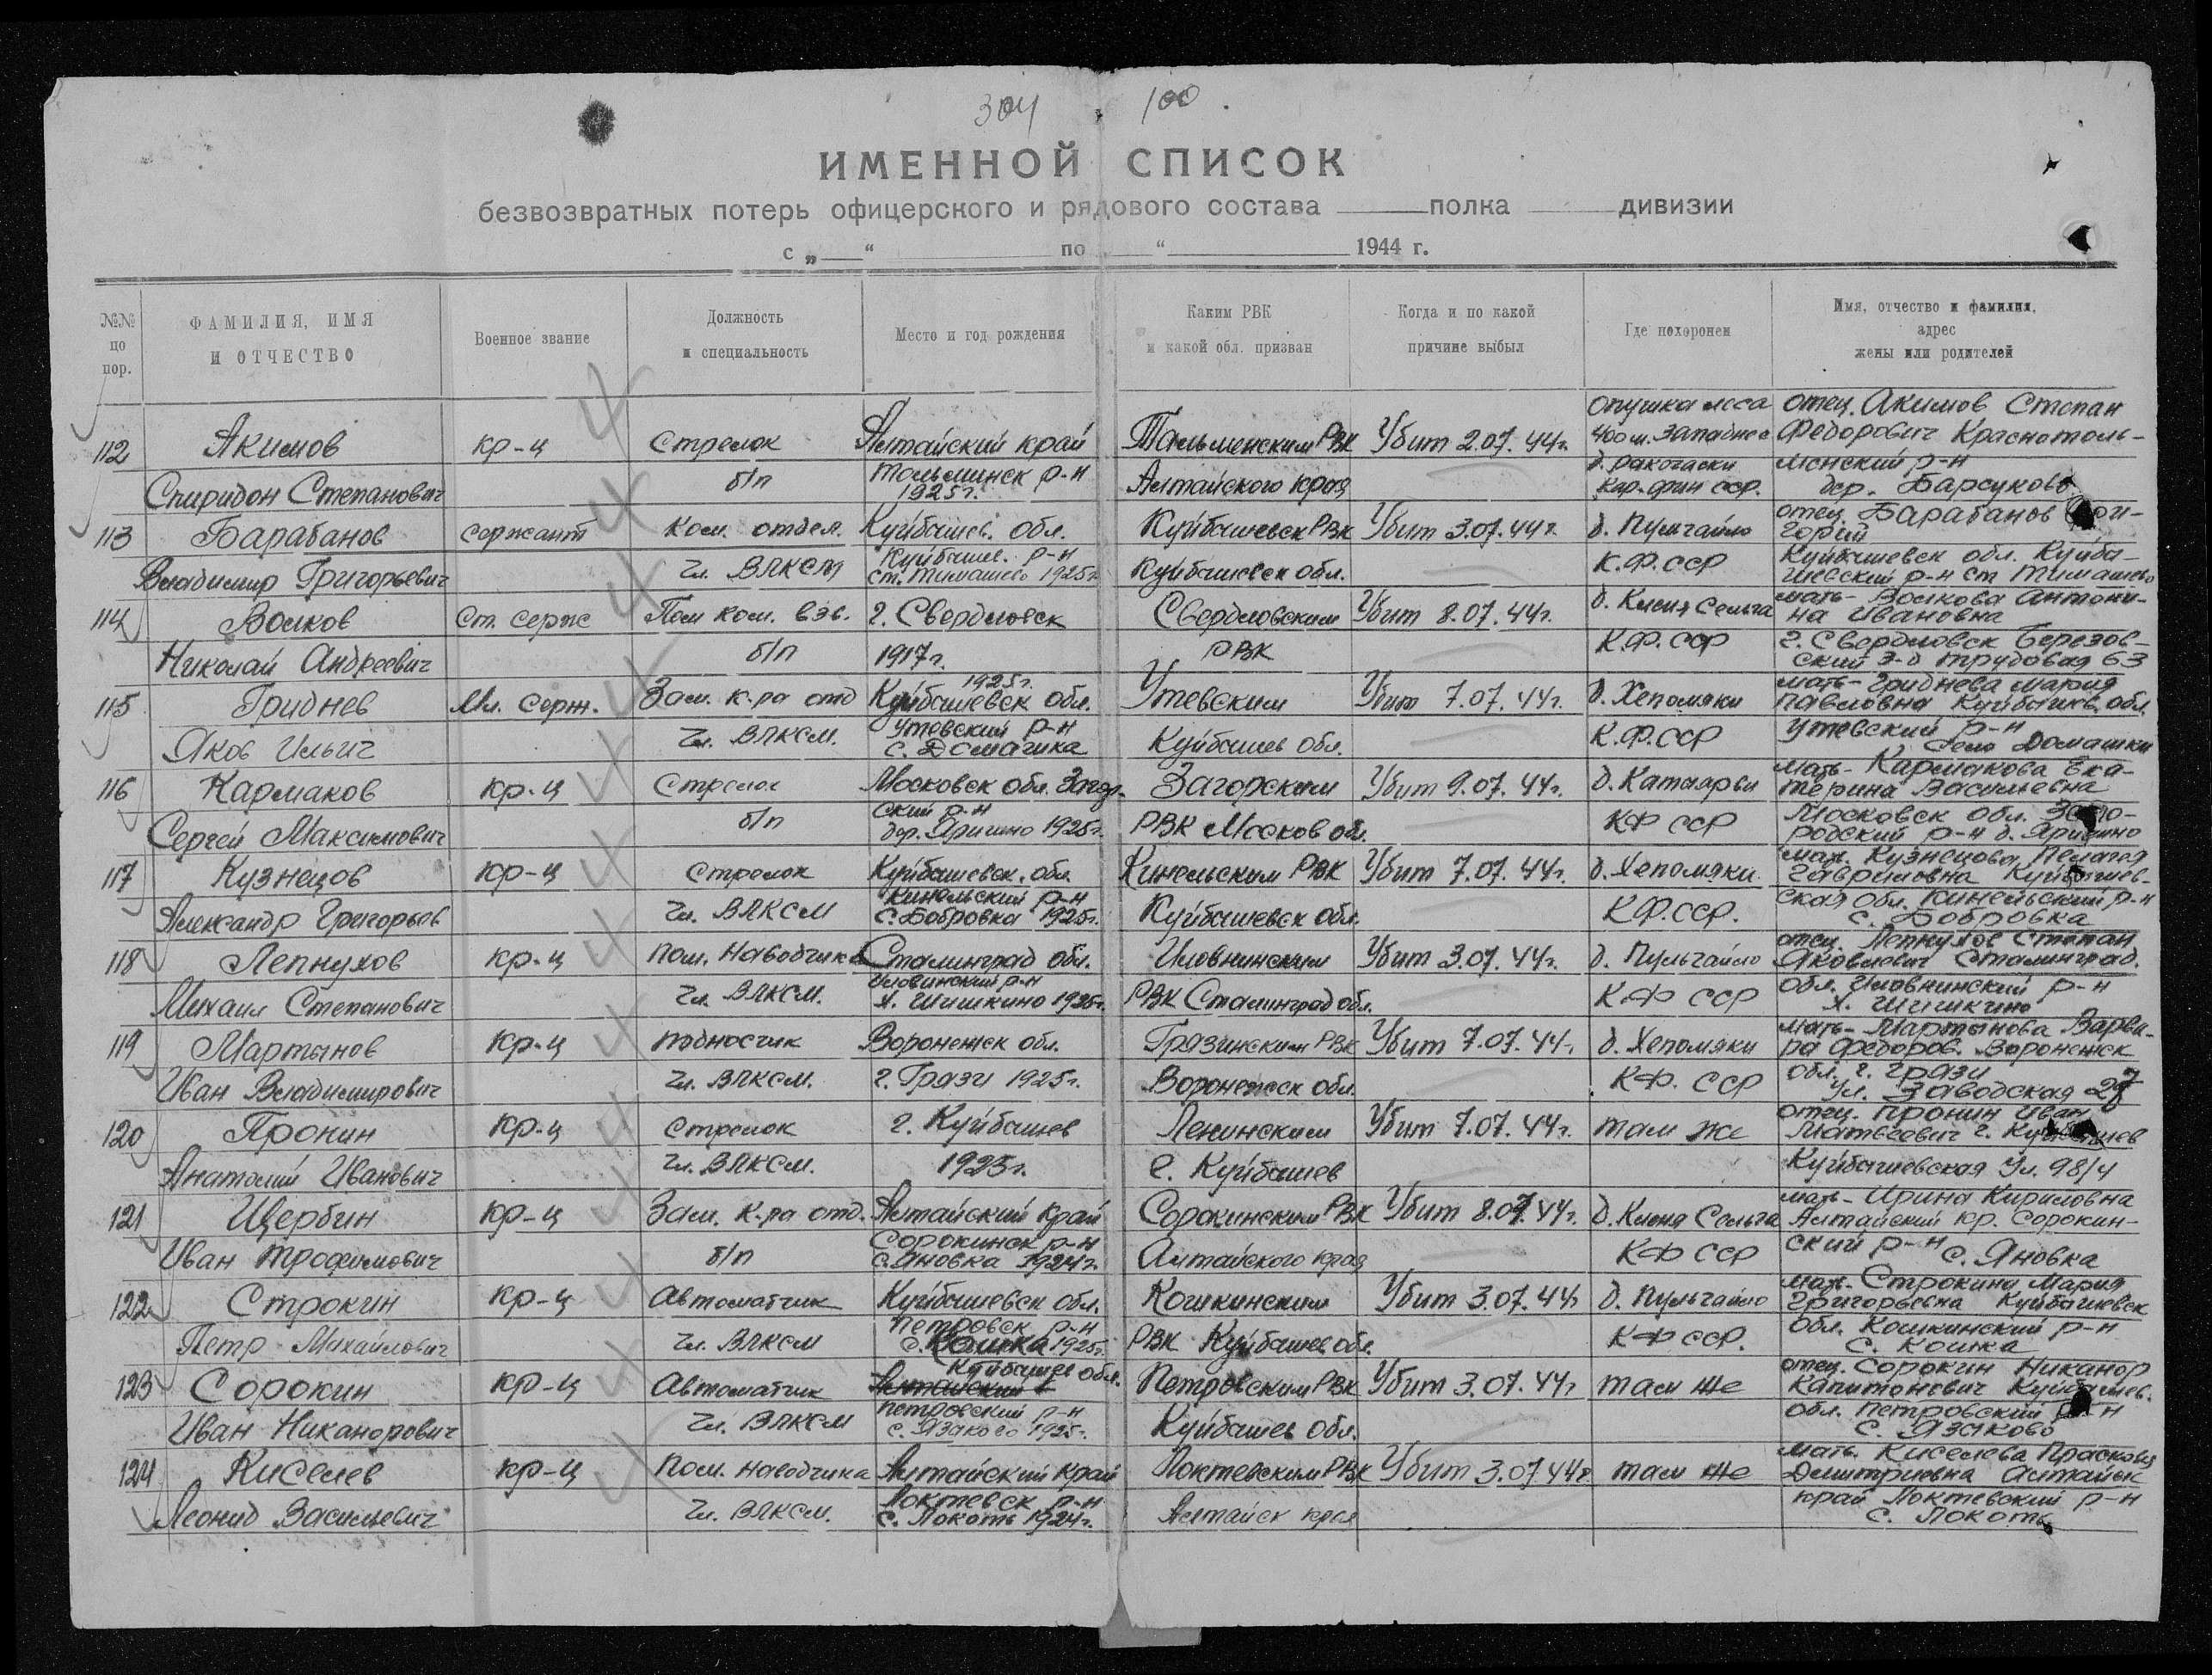 304 100
ИМЕННОЙ СПИСОК
безвозвратных потерь офицерского и рядового состава полка дивизии
с „ “ по “ 1944 г.
№№ по пор.
ФАМИЛИЯ, ИМЯ И ОТЧЕСТВО
Военное звание
Должность и специальность
Место и год рождения
Каким РВК и какой обл. призван
Когда и по какой причине выбыл
Где похоронен
Имя, отчество и фамилия, адрес жены или родителей
112 Акимов кр-ц Стрелок Алтайский край Тальменским РВК Убит 2.07.44г. опушка леса 400 м. западнее отец. Акимов Степан Федорович Краснотоль-
Спиридон Степанович б/п Тальминск р-н 1925г. Алтайского края Кар. фин сср. менский р-н дер. Барсуково
113 Барабанов сержант Ком. отдел. Куйбышев. обл. Куйбышевск РВК Убит 3.07.44г. д. Пульчайло отец Барабанов Григорий
Владимир Григорьевич Чл. ВЛКСМ Куйбышев. р-н ст. Тимашево 1925г. Куйбышевск обл. К.Ф.ССР Куйбышевск обл. Куйбышевский р-н ст Тимашево
114 Волков Ст. серж Пом ком. взв. г. Свердловск Свердловским Убит 8.07.44г. д. Кясня Сельга мать- Волкова Антонина Ивановна
Николай Андреевич б/п 1917г. РВК К.Ф.ССР г. Свердловск Березовский з-д Трудовая 63
115 Гриднев Мл. серж. Зам. к-ра отд 1925г. Куйбышевск обл. Утевским Убит 7.07.44г. д. Хепомяки мать- Гриднева Мария Павловна Куйбышев. обл.
Яков Ильич Чл. ВЛКСМ. Утевский р-н с. Домашка Куйбышев обл. К.Ф.ССР Утевский р-н село Домашки
116 Кармаков кр-ц Стрелок Московск обл. Загор- Загорским Убит 9.07.44г. д. Катаярви мать- Кармакова Екатерина Васильевна
Сергей Максимович б/п ский р-н дер. Яригино 1925г. РВК Москов обл. КФ ССР Московск обл. р-н д. Яригино
117 Кузнецов кр-ц Стрелок Куйбышевск. обл. Кинельским РВК Убит 7.07.44г. д. Хепомяки. мат. Кузнецова Пелагея Гавриловна Куйбышев-
Александр Григорьев Чл. ВЛКСМ Кинельский р-н с. Бобровка 1925г. Куйбышевск обл. КФ.ССР. ская обл. Кинельский р-н с. Бобровка
118 Лепнухов кр-ц Пом. Наводчика Сталинград обл. Иловнинским Убит 3.07.44г. д. Пульчайло отец. Лепнухов Степан Яковлевич Сталинград.
Михаил Степанович Чл ВЛКСМ. Иловинский р-н х. Шишкино 1925г. РВК Сталинград обл. КФ ССР обл. Иловнинский р-н х. Шишкино
119 Мартынов кр-ц подносчик Воронежск обл. Грязинским РВК Убит 7.07.44г. д. Хепомяки мать- Мартынова Варвара Федоров. Воронежск
Иван Владимирович Чл. ВЛКСМ. г. Грязи 1925г. Воронежск обл. КФ. ССР обл. г. Грязи ул. Заводская 27
120 Пронин кр-ц Стрелок г. Куйбышев Ленинским Убит 7.07.44г. там же отец. Пронин Иван Матвеевич г. Куйбышев
Анатолий Иванович Чл. ВЛКСМ. 1925г. г. Куйбышев Куйбышевская ул. 98/4
121 Щербин кр-ц Зам. к-ра отд. Алтайский край Сорокинским РВК Убит 8.07.44г. д. Кясня Сельга мать- Ирина Кириловна Алтайский кр. Сорокин-
Иван Трофимович б/п Сорокинск р-н с. Яновка 1924г. Алтайского края КФ ССР ский р-н с. Яновка
122 Строкин кр-ц Автоматчик Куйбышевск обл. Кошкинским Убит 3.07.44г д. Пульчайло мат. Строкина Мария Григорьевна Куйбышевск
Петр Михайлович Чл. ВЛКСМ Петровск р-н с. Кошка 1925г. РВК Куйбышев обл. КФ ССР. обл. Кошкинский р-н с. Кошка
123 Сорокин кр-ц Автоматчик Куйбышев обл. Алтайский Петровским РВК Убит 3.07.44г там же отец. Сорокин Никанор Капитонович Куйбышев.
Иван Никанорович Чл. ВЛКСМ Петровский р-н с. Язаково 1925г. Куйбышев обл. обл. Петровский р-н с. Язаково
124 Киселев кр-ц Пом. наводчика Алтайский край Локтевским РВК Убит 3.07.44г там же мать. Киселева Прасковья Дмитриевна Алтайск
Леонид Васильевич Чл. ВЛКСМ. Локтевск р-н с. Локоть 1924г. Алтайск края край Локтевский р-н с. Локоть